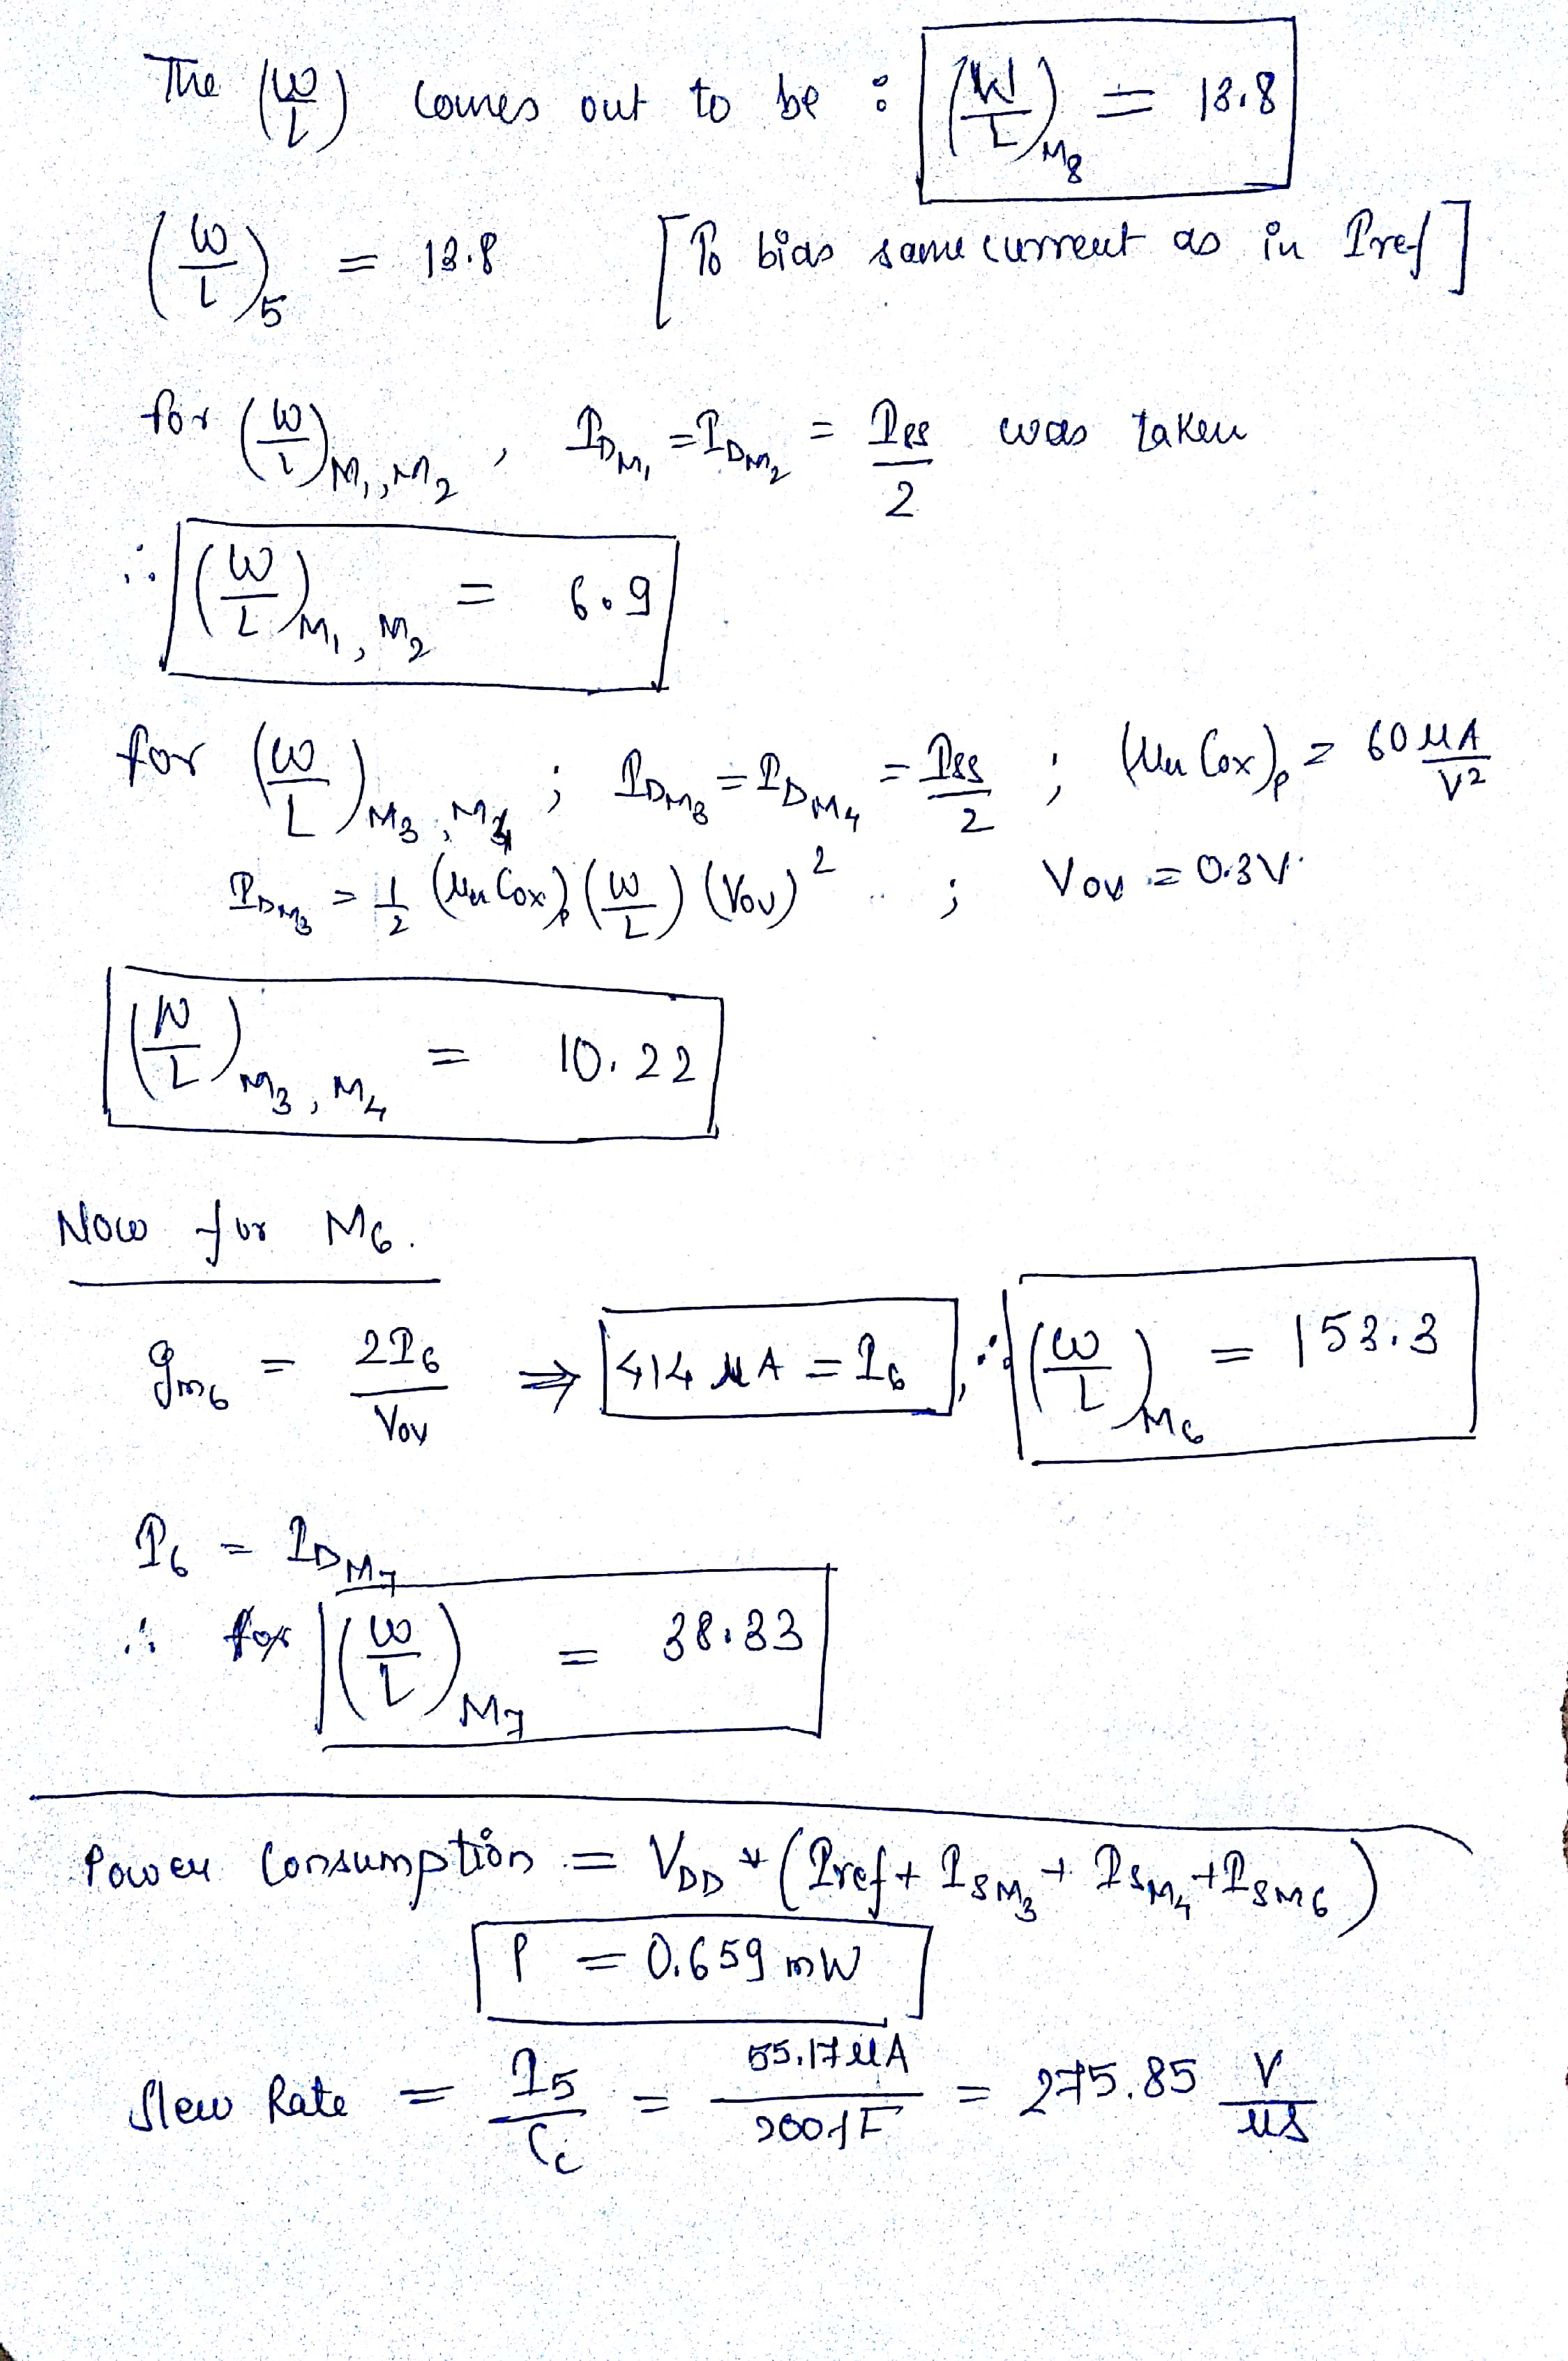 The (W/L) comes out to be : (W/L)M8 = 13.8
(W/L)5 = 13.8 [To bias same current as in Iref]
for (W/L)M1,M2 , IDM1 = IDM2 = ISS/2 was taken
∴ (W/L)M1,M2 = 6.9
for (W/L)M3,M4 ; IDM3 = IDM4 = ISS/2 ; (μnCox)p = 60 μA/V²
IDM3 = 1/2 (μnCox)p (W/L) (Vov)² ; Vov = 0.3V
(W/L)M3,M4 = 10.22
Now for M6.
gm6 = 2I6/Vov ⇒ 414 μA = I6 , ∴ (W/L)M6 = 153.3
I6 = IDM7
∴ for (W/L)M7 = 38.33
Power Consumption = VDD * (Iref + ISM3 + ISM4 + ISM6)
P = 0.659 mW
Slew Rate = I5/Cc = 55.17μA/200fF = 275.85 V/μs